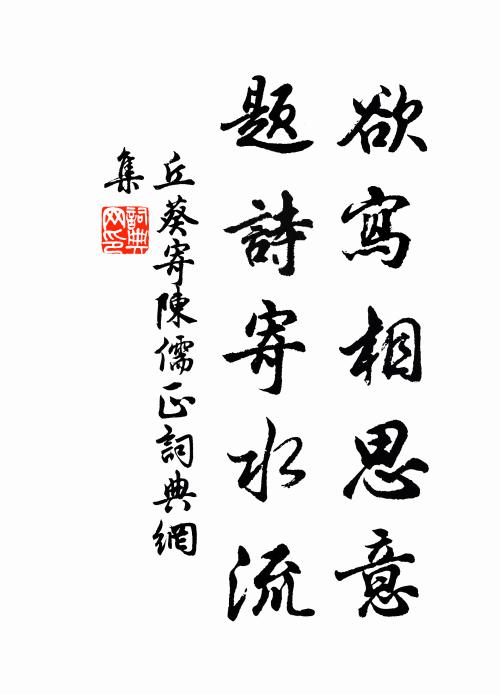 欲寫相思意
題詩寄水流
丘葵寄陳儒正詞典網
集
詞典網印